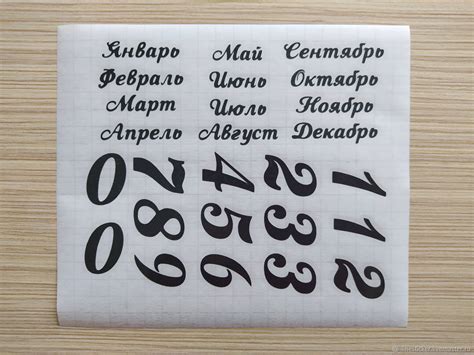 Январь Май Сентябрь
Февраль Июнь Октябрь
Март Июль Ноябрь
Апрель Август Декабрь
0 7 4 2 1
0 8 5 3 1
9 6 3 2